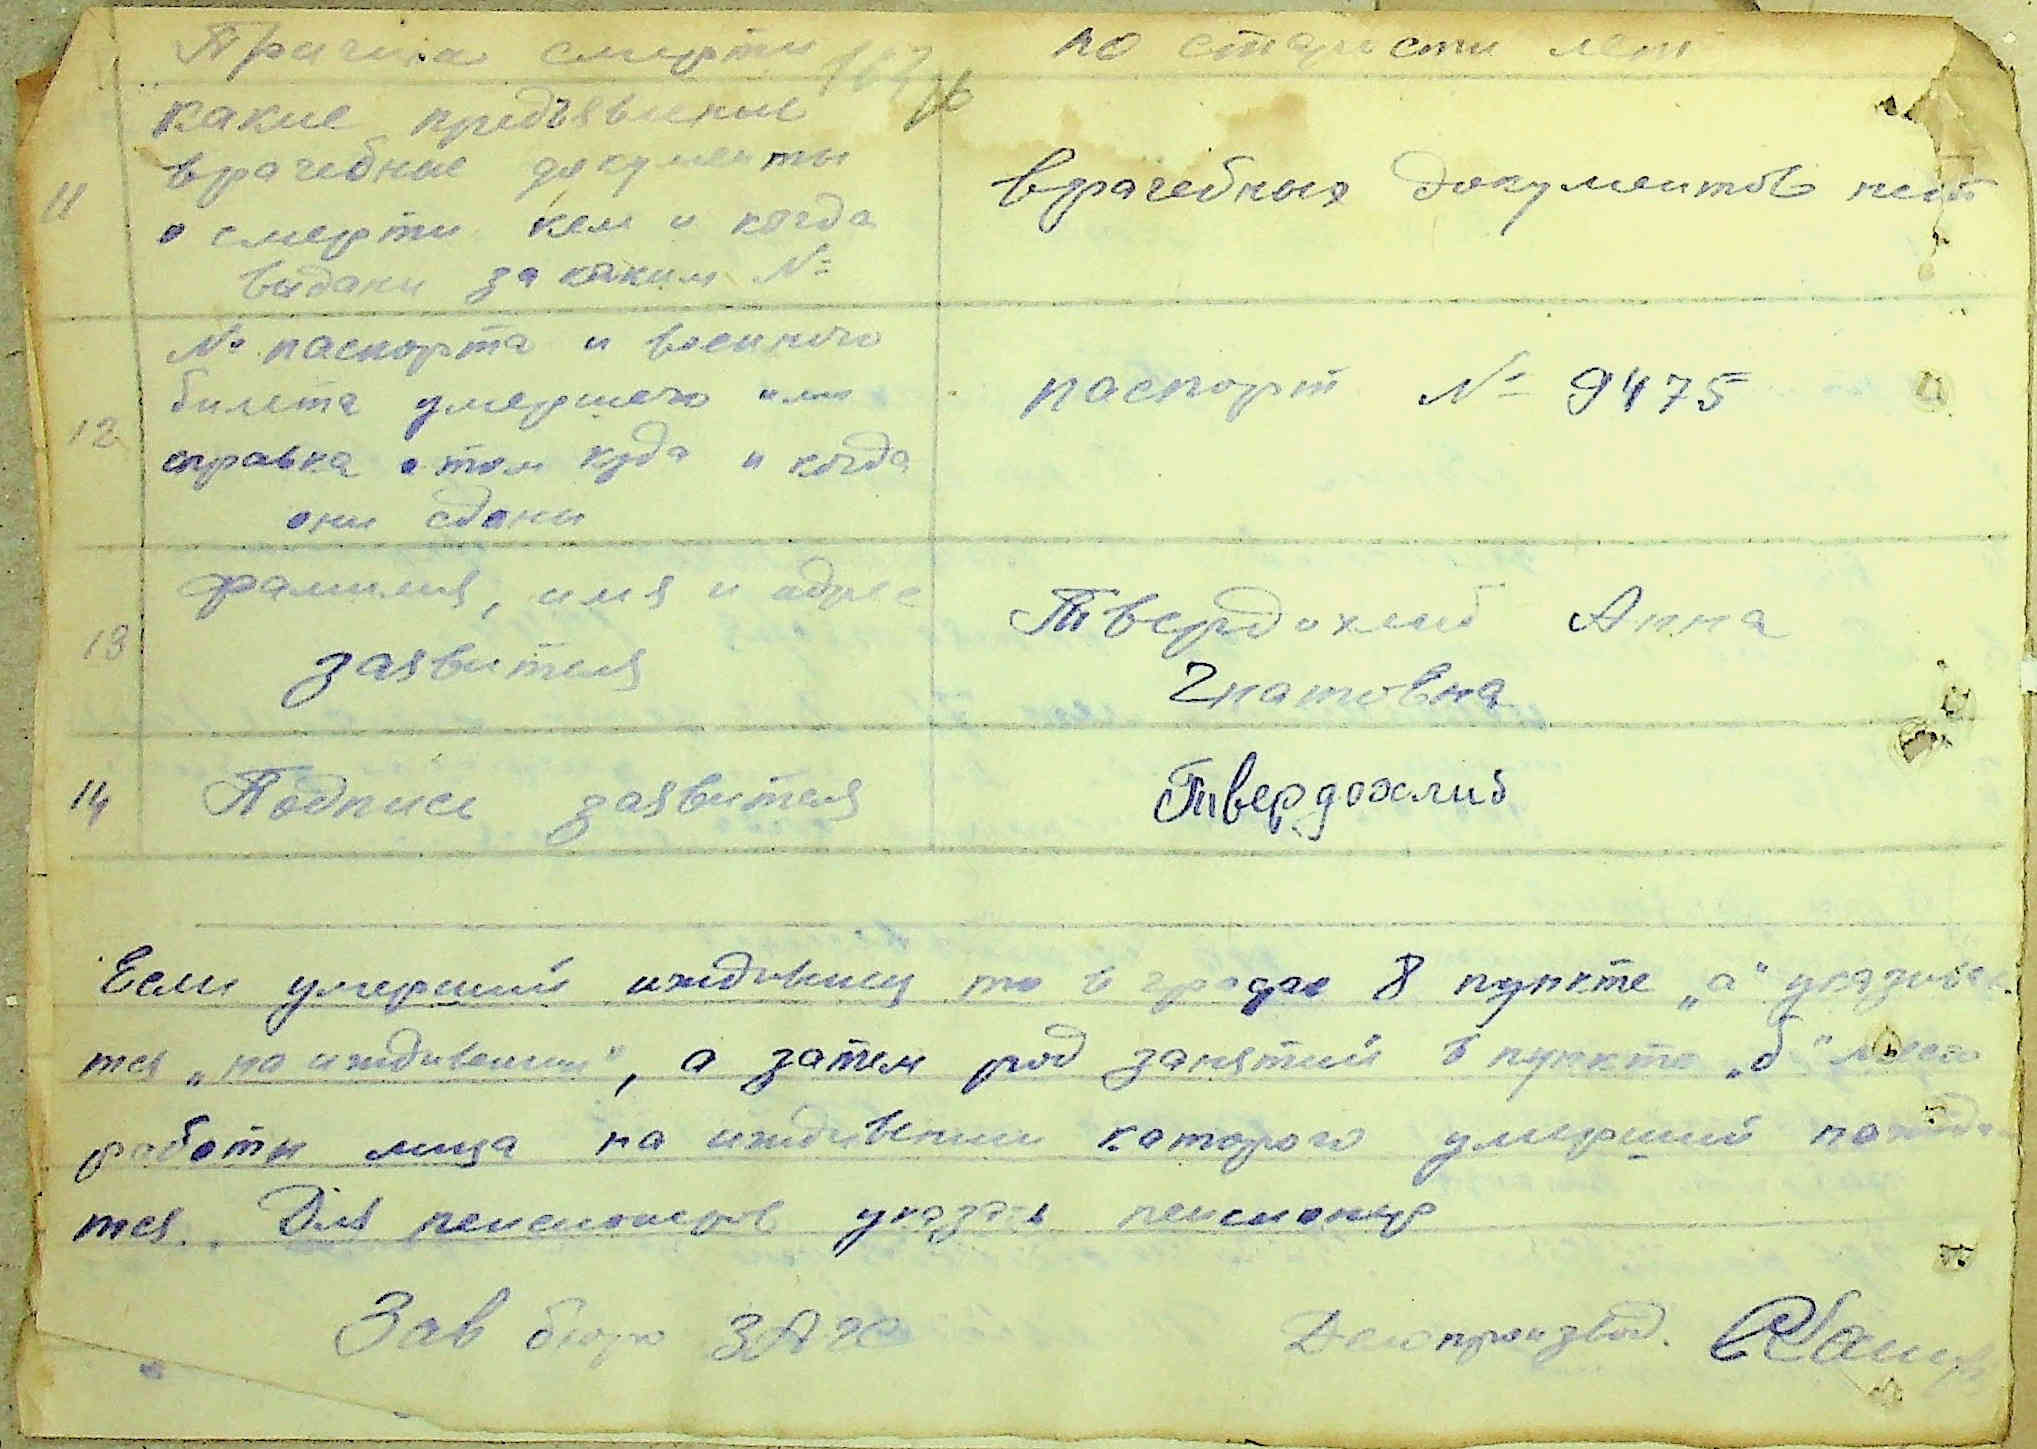 Причина смерти по старости лет
какие предъявлены
врачебные документы
11 о смерти кем и когда врачебных документов нет
выданы за каким №
№ паспорта и военного
билета умершего или паспорт № 9475
12 справка о том куда и когда
они сданы
фамилия, имя и адрес Твердохлиб Анна
13 заявителя Гнатовна
14 Подпись заявителя Твердохлиб
Если умерший иждивенец то в графе 8 пункте „а" указывае-
тся „на иждивении", а затем род занятий в пункте „б" место
работы лица на иждивении каторого умерший находи-
тся. Для пенсионеров указать пенсионер
Зав бюро ЗАГС Делопроизвод.